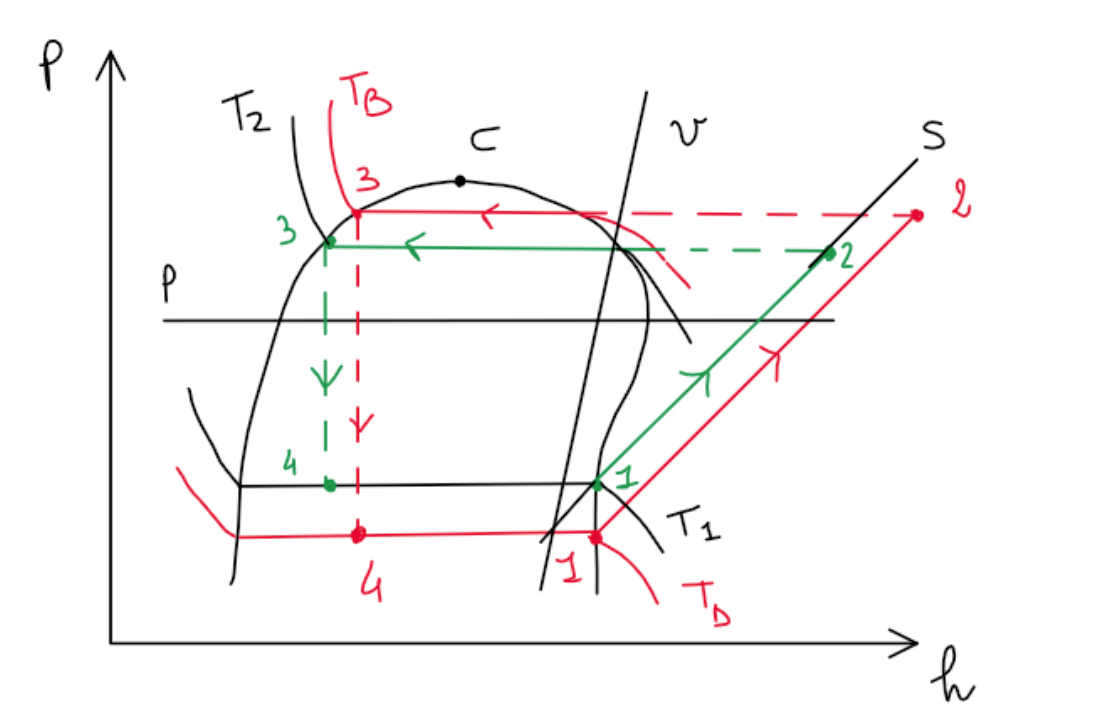 P
T2
TB
C
v
S
3
2
3
2
P
4
1
T1
1
4
TD
h